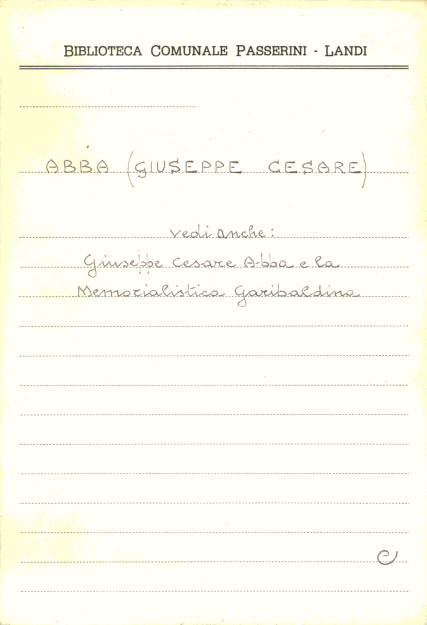 BIBLIOTECA COMUNALE PASSERINI - LANDI
ABBA (GIUSEPPE CESARE)
vedi anche:
Giuseppe Cesare Abba e la
Memorialistica Garibaldina